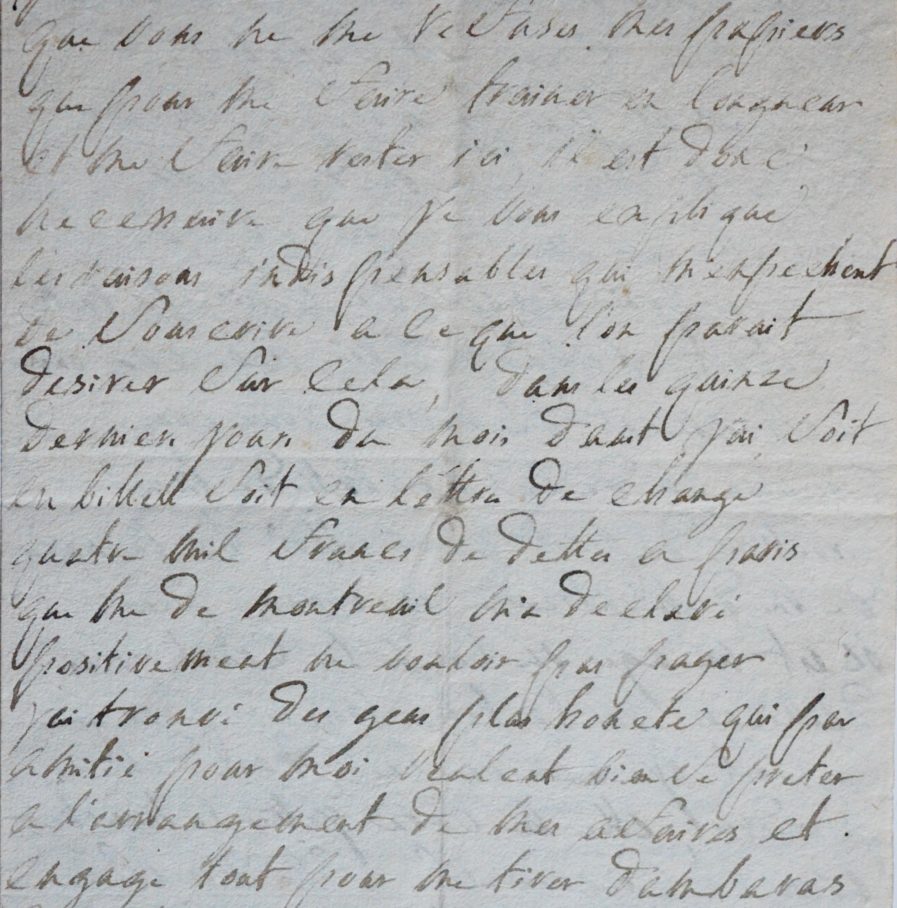 que vous ne me refuses mes papiers
que pour me faire trainer en longueur
et me faire rester ici, il est donc
necessaire que je vous explique
les raisons indispensables qui mempechent
de souscrire a ce que l'on parait
desirer sur cela, dans les quinze
dernien jours du mois daout jai soit
en billets soit en lettre de change
quatre mil francs de dettes a paris
que me de montreuil m'a declaré
positivement ne vouloir pas payer
jai trouvé des gens plus honete qui par
amitié pour moi veulent bien se preter
a l'arrangement de mes afaires et
engage tout pour me tirer dambaras